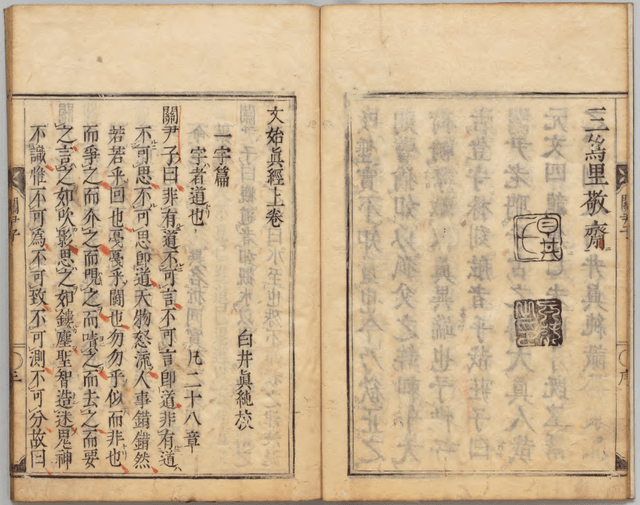 三里敬齋
文始眞經上卷
白井眞純校
一宇篇
宇者道也 凡二十八章
關尹子曰非有道不可言不可言即道非有道
不可思不可思即道天物怒流人事錯錯然
若若乎回也戞戞乎鬭也勿勿乎似而非也
而爭之而介之而哯之而嘖之而去之而要
之言之如吹影思之如鏤塵聖智造迷鬼神
不識惟不可爲不可致不可測不可分故曰
關尹子